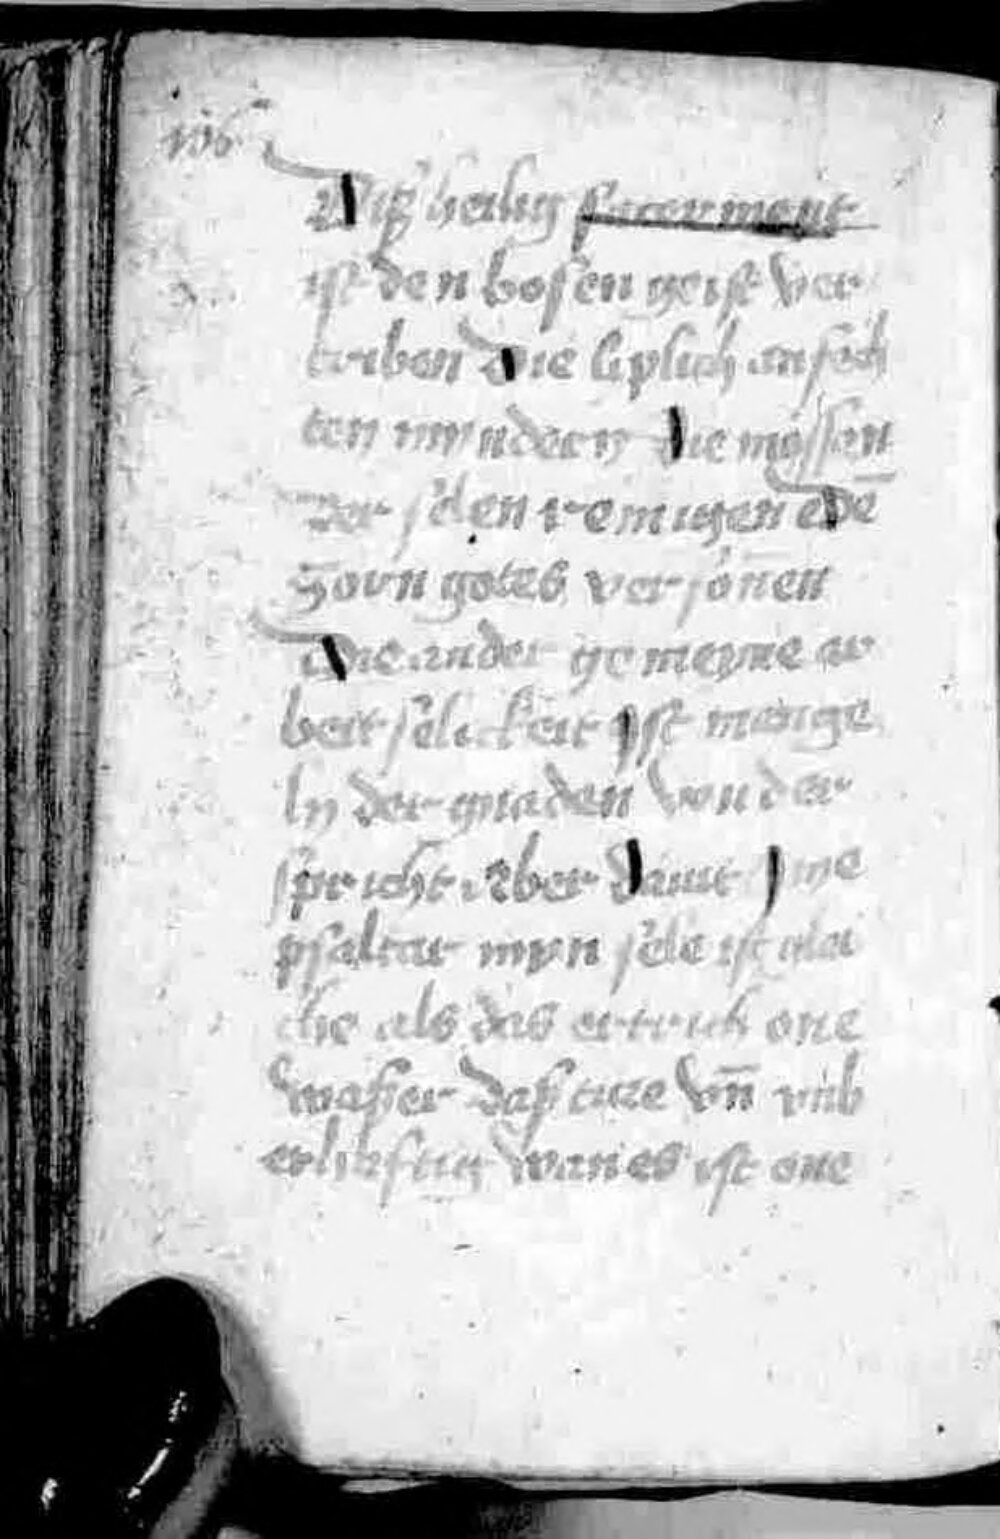 Diß heilig sacrament
ist den bosen geist ver
triben Die liplich anfech
ten myndern Die mossen
der selen reinigen Dē
zorn gotes versonen
Die ander gemeyne ar
beitselickeit Ist menge
In der gnaden von der
spricht aber Dauit Jme
psalter myn sele ist glei
che als das ertrich one
wasser das ture vnn
wan es ist one